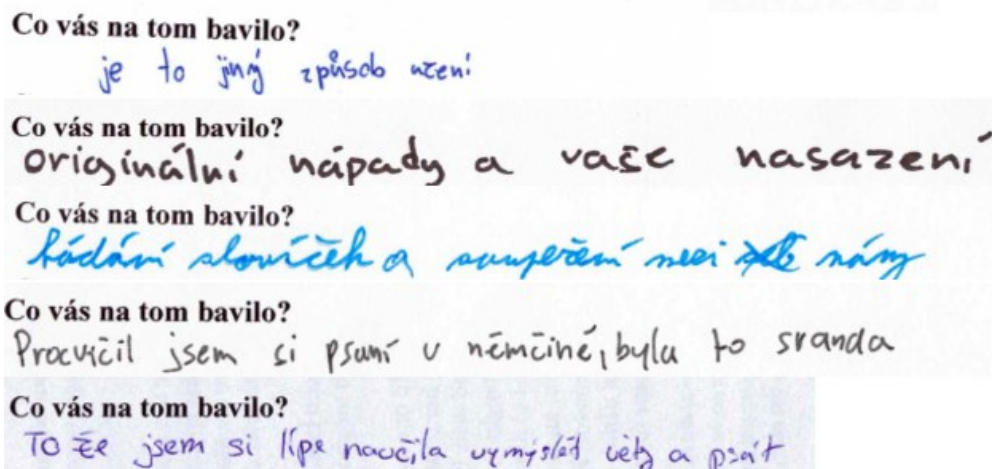 Co vás na tom bavilo?
je to jiný způsob učení
Co vás na tom bavilo?
originální nápady a vaše nasazení
Co vás na tom bavilo?
hádání slovíček a soupeření mezi námi
Co vás na tom bavilo?
Procvičil jsem si psaní v němčině, byla to sranda
Co vás na tom bavilo?
To že jsem si lípe naučila vymýšlet věty a psát